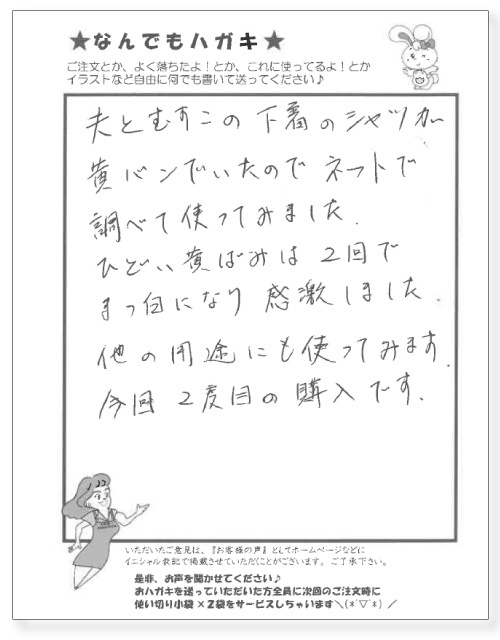 ★なんでもハガキ★
ご注文とか、よく落ちたよ!とか、これに使ってるよ!とか
イラストなど自由に何でも書いて送ってください♪
夫とむすこの下着のシャツが
黄バンでいたのでネットで
調べて使ってみました.
ひどい黄ばみは2回で
まっ白になり感激しました.
他の用途にも使ってみます.
今回2度目の購入です.
いただいたご意見は、『お客様の声』としてホームページなどに
イニシャル表記で掲載させていただくことがございます。ご了承下さい。
是非、お声を聞かせてください♪
おハガキを送っていただいた方全員に次回のご注文時に
使い切り小袋×2袋をサービスしちゃいます＼(*´▽`*)／